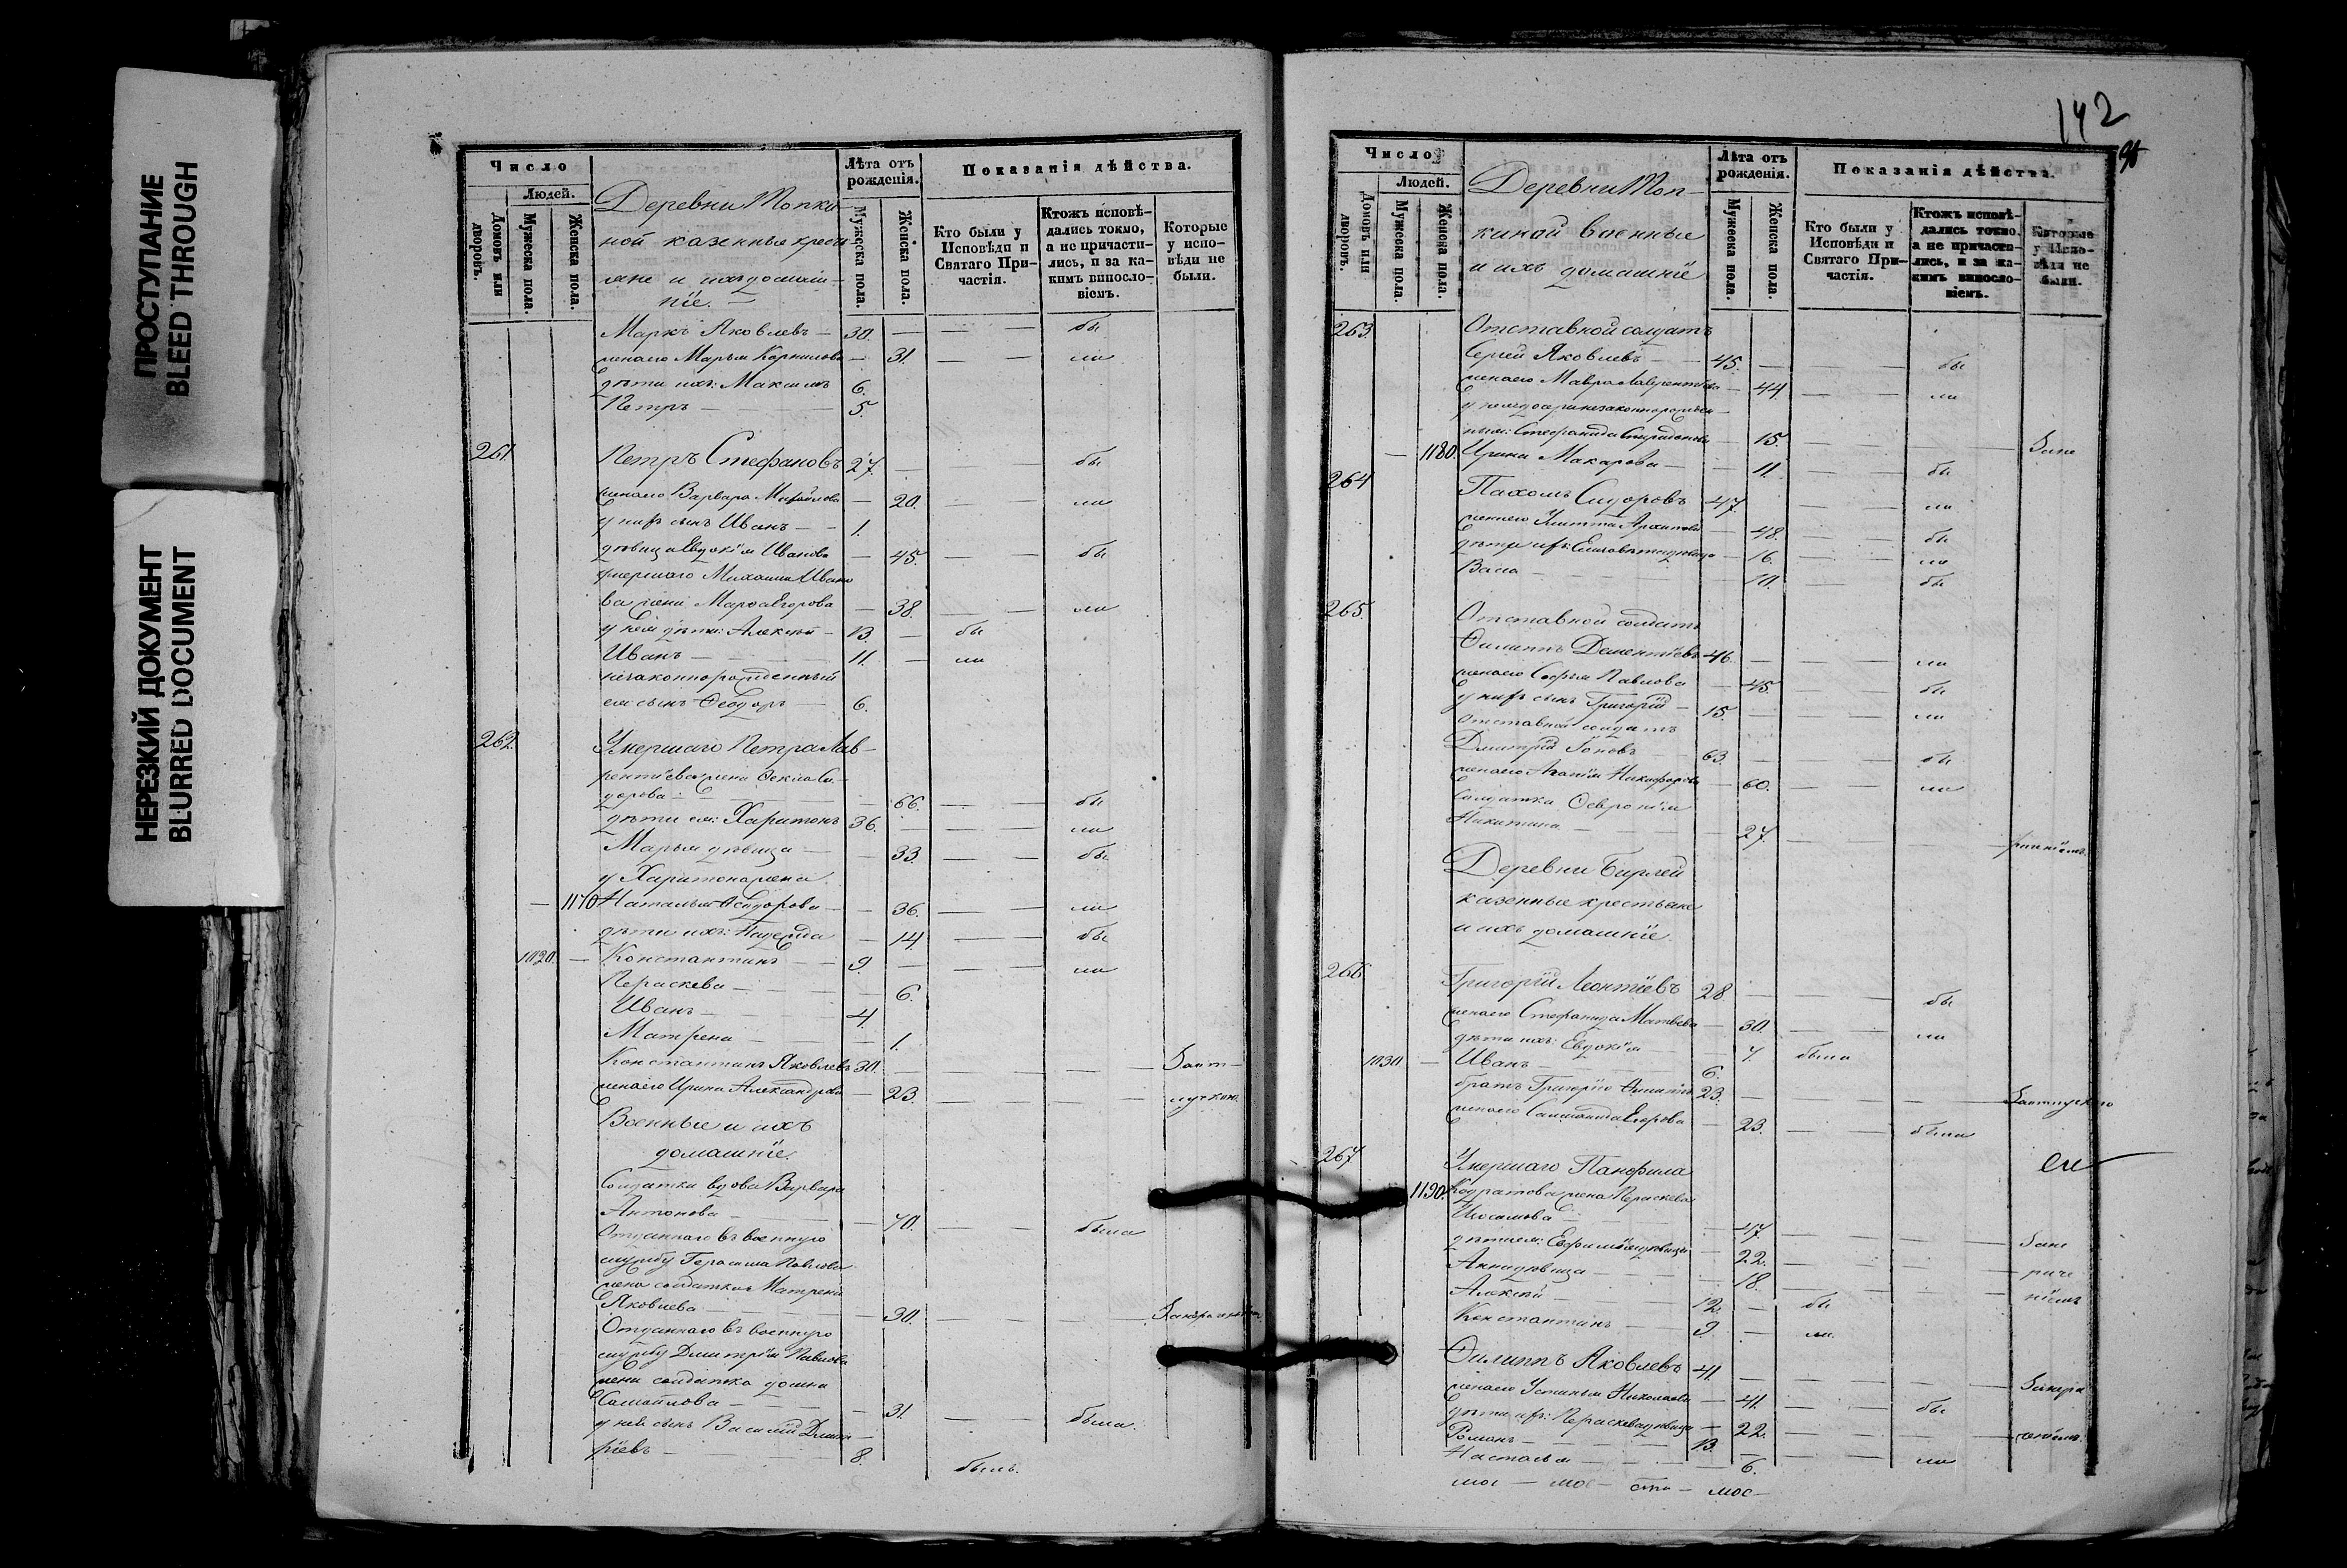 ПРОСТУПАНИЕ
BLEED THROUGH
НЕРЕЗКИЙ ДОКУМЕНТ
BLURRED DOCUMENT
Число
Людей.
Домовъ или дворовъ.
Мужеска пола.
Женска пола.
Лѣта отъ рожденія.
Мужеска пола.
Женска пола.
Показанія дѣйства.
Кто были у Исповѣди и Святаго Причастія.
Ктожъ исповѣдались токмо, а не причастились, и за какимъ винословіемъ.
Которые у исповѣди не были.
Деревни Топки-
ной казенные крестья
не и ихъ домаш-
ніе.
Маркъ Яковлевъ — 30. — бы
жена его Марья Корнилова — 31. — ли
дѣти ихъ: Максимъ 6.
Петръ — 5.
261. Петръ Стефановъ 27. — бы
жена его Варвара — 20. — ли
у нихъ сынъ Иванъ — 1.
дѣвица Евдокія Иванова — 45. — бы
умершаго Михаила Ивано
ва жена Марфа Егорова — 38. — ли
у ней дѣти: Алексѣй — 13. — бы
Иванъ — 11. — ли
незаконнорожденный
ея сынъ Ѳеодоръ — 6.
262. Умершаго Петра Лав-
рентіева жена Ѳекла Си-
дорова — 66. — бы
дѣти ея: Харитонъ 36. — ли
Марья дѣвица — 33. — бы
у Харитона жена
— 1170 Наталья — 36. — ли
дѣти ихъ: Надежда — 14. — бы
1020. — Константинъ — 9. — ли
Параскева — 6.
Иванъ — 4.
Матрена — 1.
Константинъ Яковлевъ 30. —
жена его Ирина Александрова — 23. —
Военные и ихъ
домашніе.
Солдатка вдова Варвара
Антонова — 70. — была
Отданнаго въ военную
службу Герасима Павлова
жена солдатка Матрена
Яковлева — 30. —
Отданнаго въ военную
службу Дмитрія Павлова
жена солдатка
Самойлова — 31. — была.
у нея сынъ Василій Дмит-
ріевъ — 8. — былъ.
142
Число
Людей.
Домовъ или дворовъ.
Мужеска пола.
Женска пола.
Лѣта отъ рожденія.
Мужеска пола.
Женска пола.
Показанія дѣйства.
Кто были у Исповѣди и Святаго Причастія.
Ктожъ исповѣдались токмо, а не причастились, и за какимъ винословіемъ.
Которые у Исповѣди не были.
Деревни Топ-
киной военные
и ихъ домашніе
263. Отставной солдатъ
Сергѣй Яковлевъ — 45. — бы
жена его Мавра Лаврентьева — 44. — ли
Стефанида Спиридонова — 15. —
— 1180. Ирина Макарова — 11. — бы
264 Пахомъ Сидоровъ 47. — ли
жена его Архипова — 48. — бы
дѣти ихъ: Елисавета дѣвица — 16. — ли
Васа — 10. — бы
265. Отставной солдатъ
Филиппъ 46. — ли
жена его Софья Павлова — 45. — бы
у нихъ сынъ Григорій — 15. — ли
Отставной солдатъ
Дмитрій 63. — бы
жена его Никифорова — 60. — ли
Солдатка Ѳевронія
Никитина — 27. —
Деревни Бирлей
казенные крестьяне
и ихъ домашніе.
266 Григорій Леонтіевъ 28 — бы
жена его Стефанида Матвеева — 30. — ли
дѣти ихъ: Евдокія — 7. была
1030. — Иванъ — 6.
братъ Григорія 23. —
жена его Егорова — 23. — была
267 Умершаго Панфила
1190. жена Параскева
— 47. —
дѣвица — 22. —
Анна дѣвица — 18. —
Алексѣй — 12. — бы
Константинъ — 9. — ли.
Филиппъ Яковлевъ 41. —
жена его Устинья Николаева — 41. — бы
дѣти ихъ: Параскева дѣвица — 22. —
Романъ — 13. —
Настасья — 6. — ли